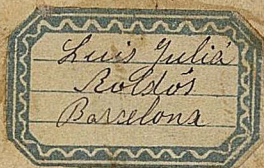 Luis Juliá
Roldós
Barcelona